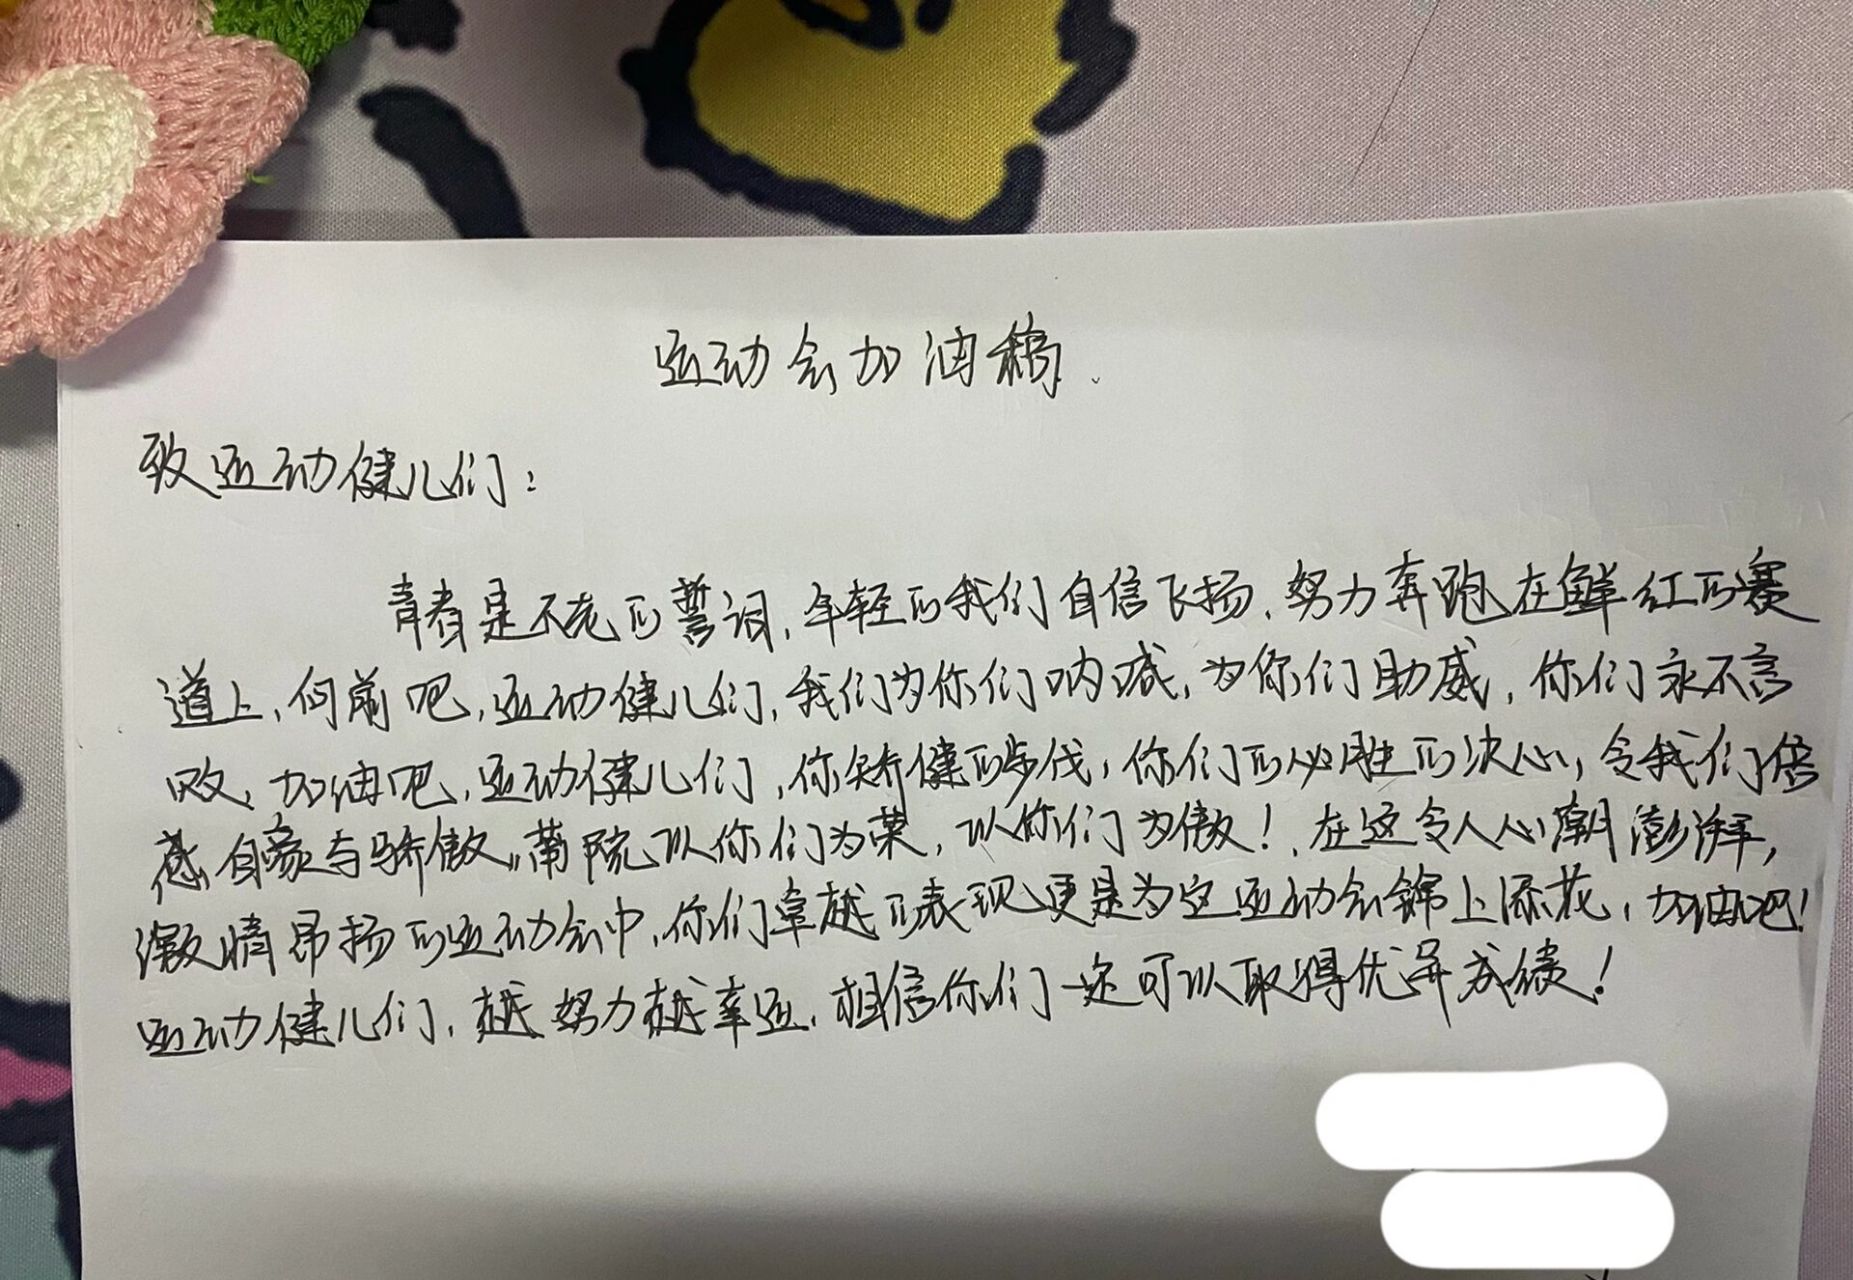 运动会加油稿.
致运动健儿们:
青春是不老的誓词,年轻的我们自信飞扬,努力奔跑在鲜红的赛
道上,向前吧,运动健儿们,我们为你们呐喊,为你们助威,你们永不言
败,加油吧,运动健儿们,你矫健的步伐,你们的必胜的决心,令我们倍
感自豪与骄傲,院以你们为荣,以你们为傲!在这令人心潮澎湃,
激情昂扬的运动会中,你们卓越的表现更是为这运动会锦上添花,加油吧!
运动健儿们,越努力越幸运,相信你们一定可以取得优异成绩!